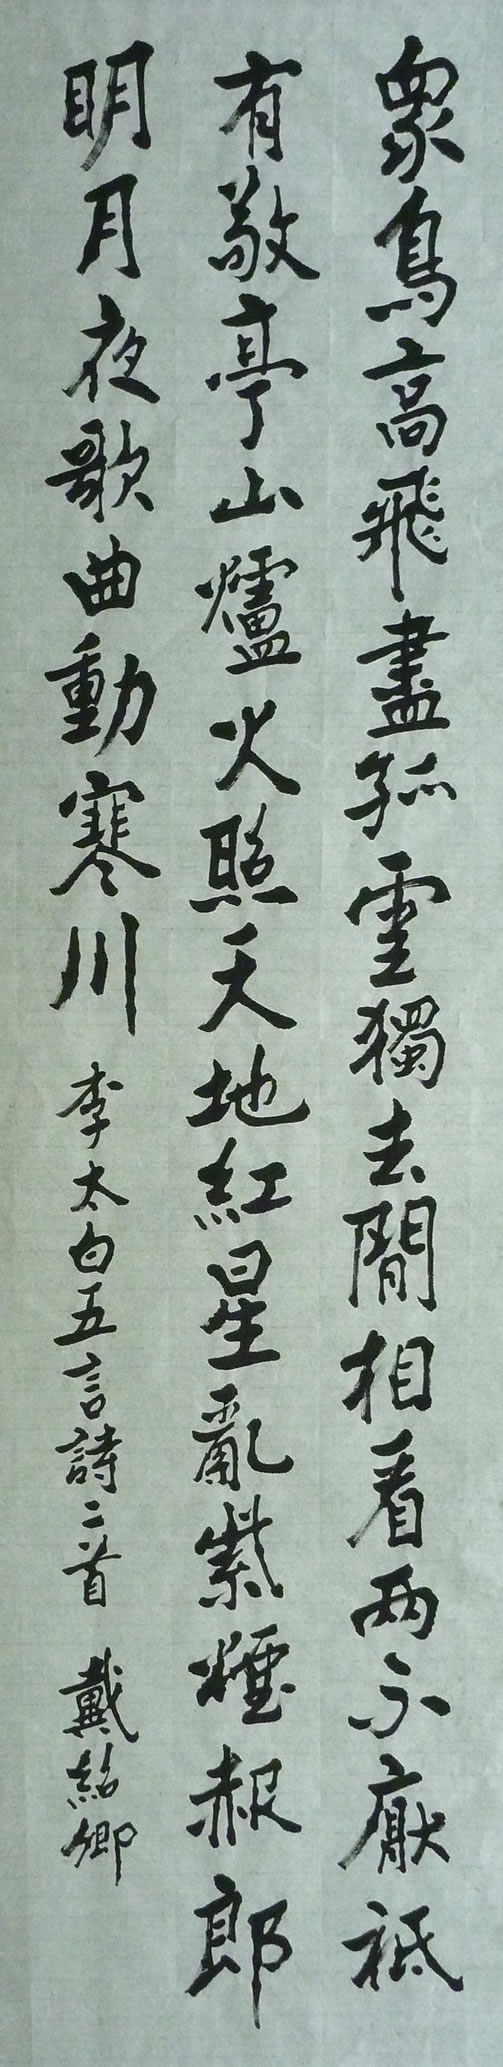 衆鳥高飛盡孤雲獨去閒相看兩不厭祗
有敬亭山爐火照天地紅星亂紫煙赧郎
明月夜歌曲動寒川
李太白五言詩二首
戴紹卿